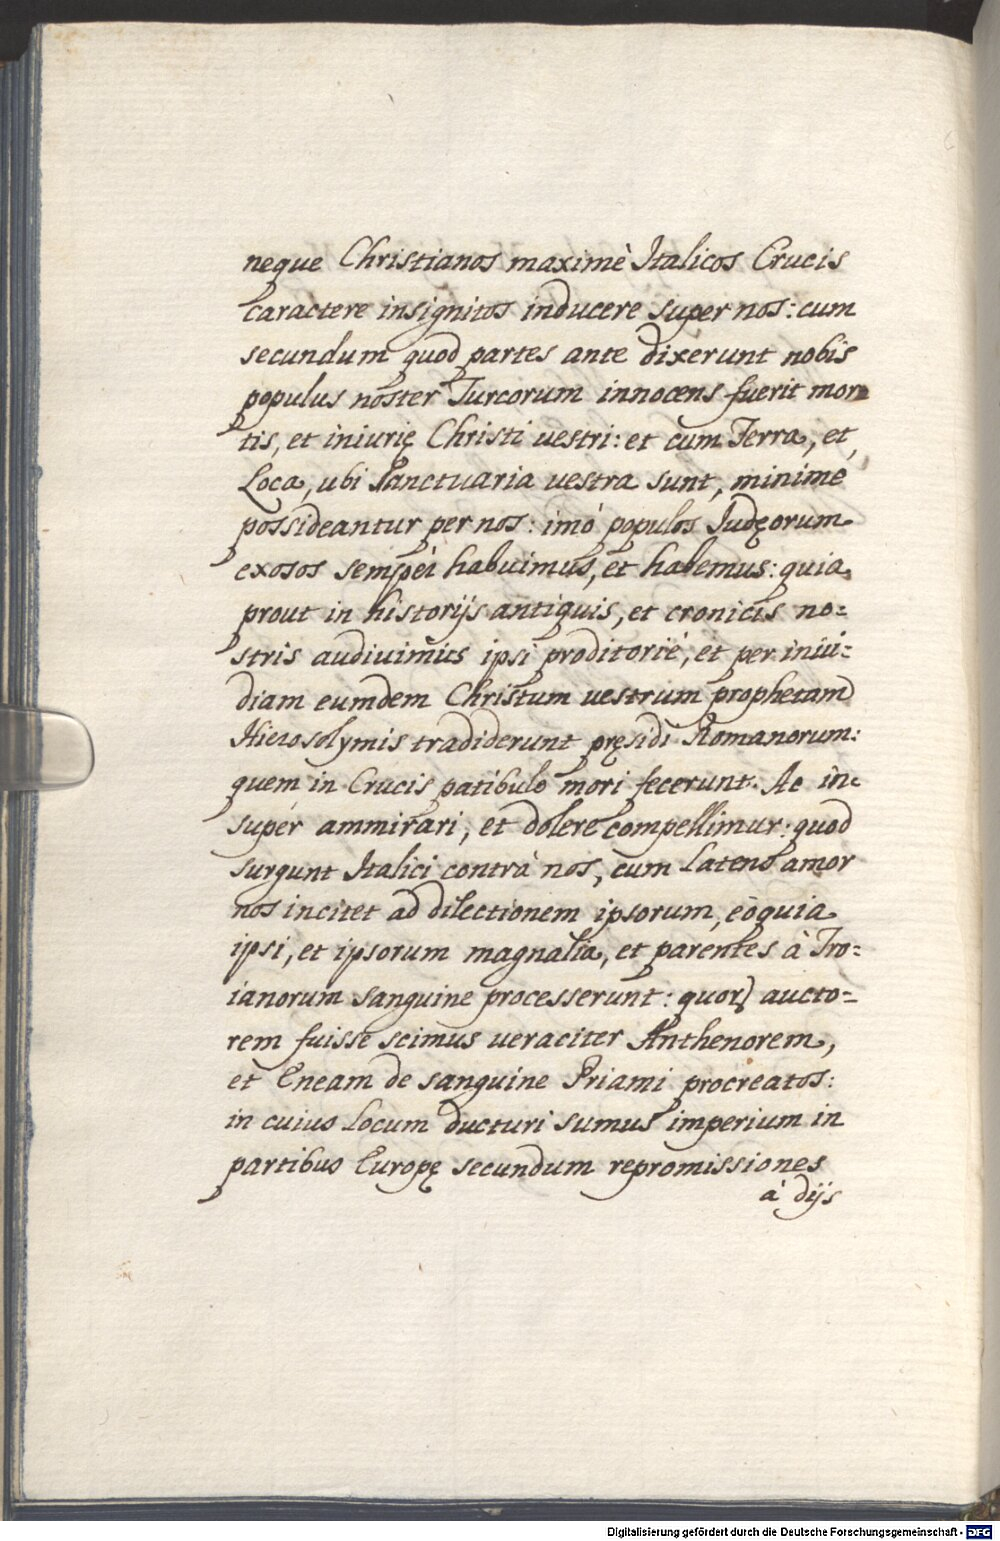 neque Christianos maximè Italicos Crucis
Caractere insignitos inducere super nos: cum
secundum quod partes ante dixerunt nobis
populus noster Turcorum innocens fuerit mor
tis, et iniurię Christi vestri: et cum Terra, et
Loca, ubi Sanctuaria vestra sunt, minimè
possideantur per nos: imò populos Judęorum
exosos semper habuimus, et habemus: quia
prout in historijs antiquis, et cronicis no=
stris audivimus ipsi proditoriè, et per inui=
diam eumdem Christum vestrum prophetam
Hierosolymis tradiderunt pręsidi Romanorum:
quem in Crucis patibulo mori fecerunt. Ac in=
super ammirari, et dolere compellimur: quod
surgunt Italici contrà nos, cum Latens amor
nos incitet ad dilectionem ipsorum, eòquia
ipsi, et ipsorum magnalia, et parentes à Tro=
ianorum sanguine processerunt: quorꝝ aucto=
rem fuisse scimus veraciter Anthenorem,
et Eneam de sanguine Priami procreatos:
in cuius Locum ducturi sumus imperium in
partibus Europę secundum repromissiones
à dijs
Digitalisierung gefördert durch die Deutsche Forschungsgemeinschaft - DFG